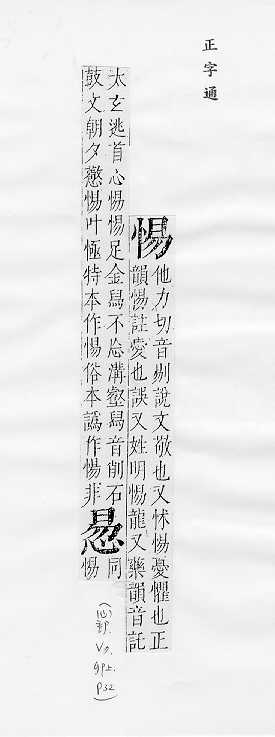 正字通
惕
他力切音剔說文敬也又怵惕憂懼也正
韻惕註愛也誤又姓明惕龍又藥韻音託
太玄逃首心惕惕足金舄不忘溝壑舄音削石
鼓文朝夕憼惕叶極特本作惕俗本譌作愓非
惖
同
惕
(心部.
P32)